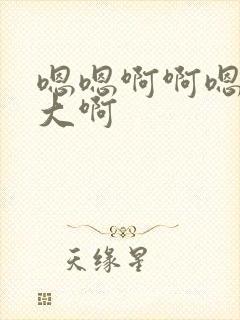 嗯嗯啊啊嗯
大啊
天缘星